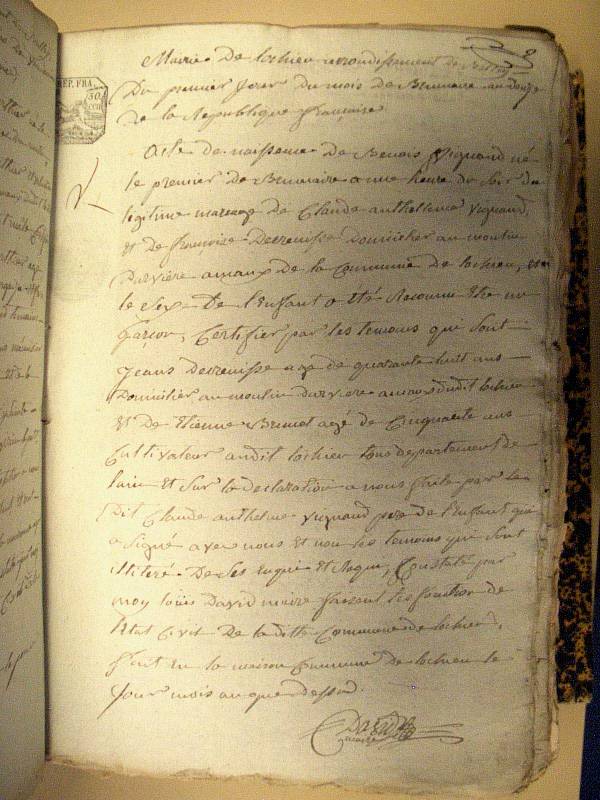 2
Mairie De lochieu arrondissement de
REP. FRA.
Du premier Jour Du mois De Brumaire an Douze
De la Republique française
Acte De naissance De Benois Vignand né
le premier De Brumaire a une heure du Soir Du
légitime mariage De Claude anthellme Vignand,
et De françoise Decremisse Domicilier au moulin
Darviere amaux De la Commune De lochieu,
le Sex De l'Enfant a été Reconnu Etre un
garçon, Certifier par les temoins qui Sont
Jeans Decremisse age De quarante huit ans
Domicilier au moulin Darviere amaux dudit lochieu
Et De Etienne Brunet agé De Cinquante ans
Cultivateur audit lochieu tous departement De
lain Et Sur la Declaration a nous faite par le
Dit Claude anthelme Vignand pere De l'Enfant qui
a Signé avec nous Et non les temoins qui Sont
illiteré De Ses Enquis Et Requi, Constaté par
moy loüis David maire faisant les fonction De
l'Etat Civil De la ditte Commune De lochieu,
fait En la maison Commune De lochieu le
Jour mois an que dessud.
David
maire